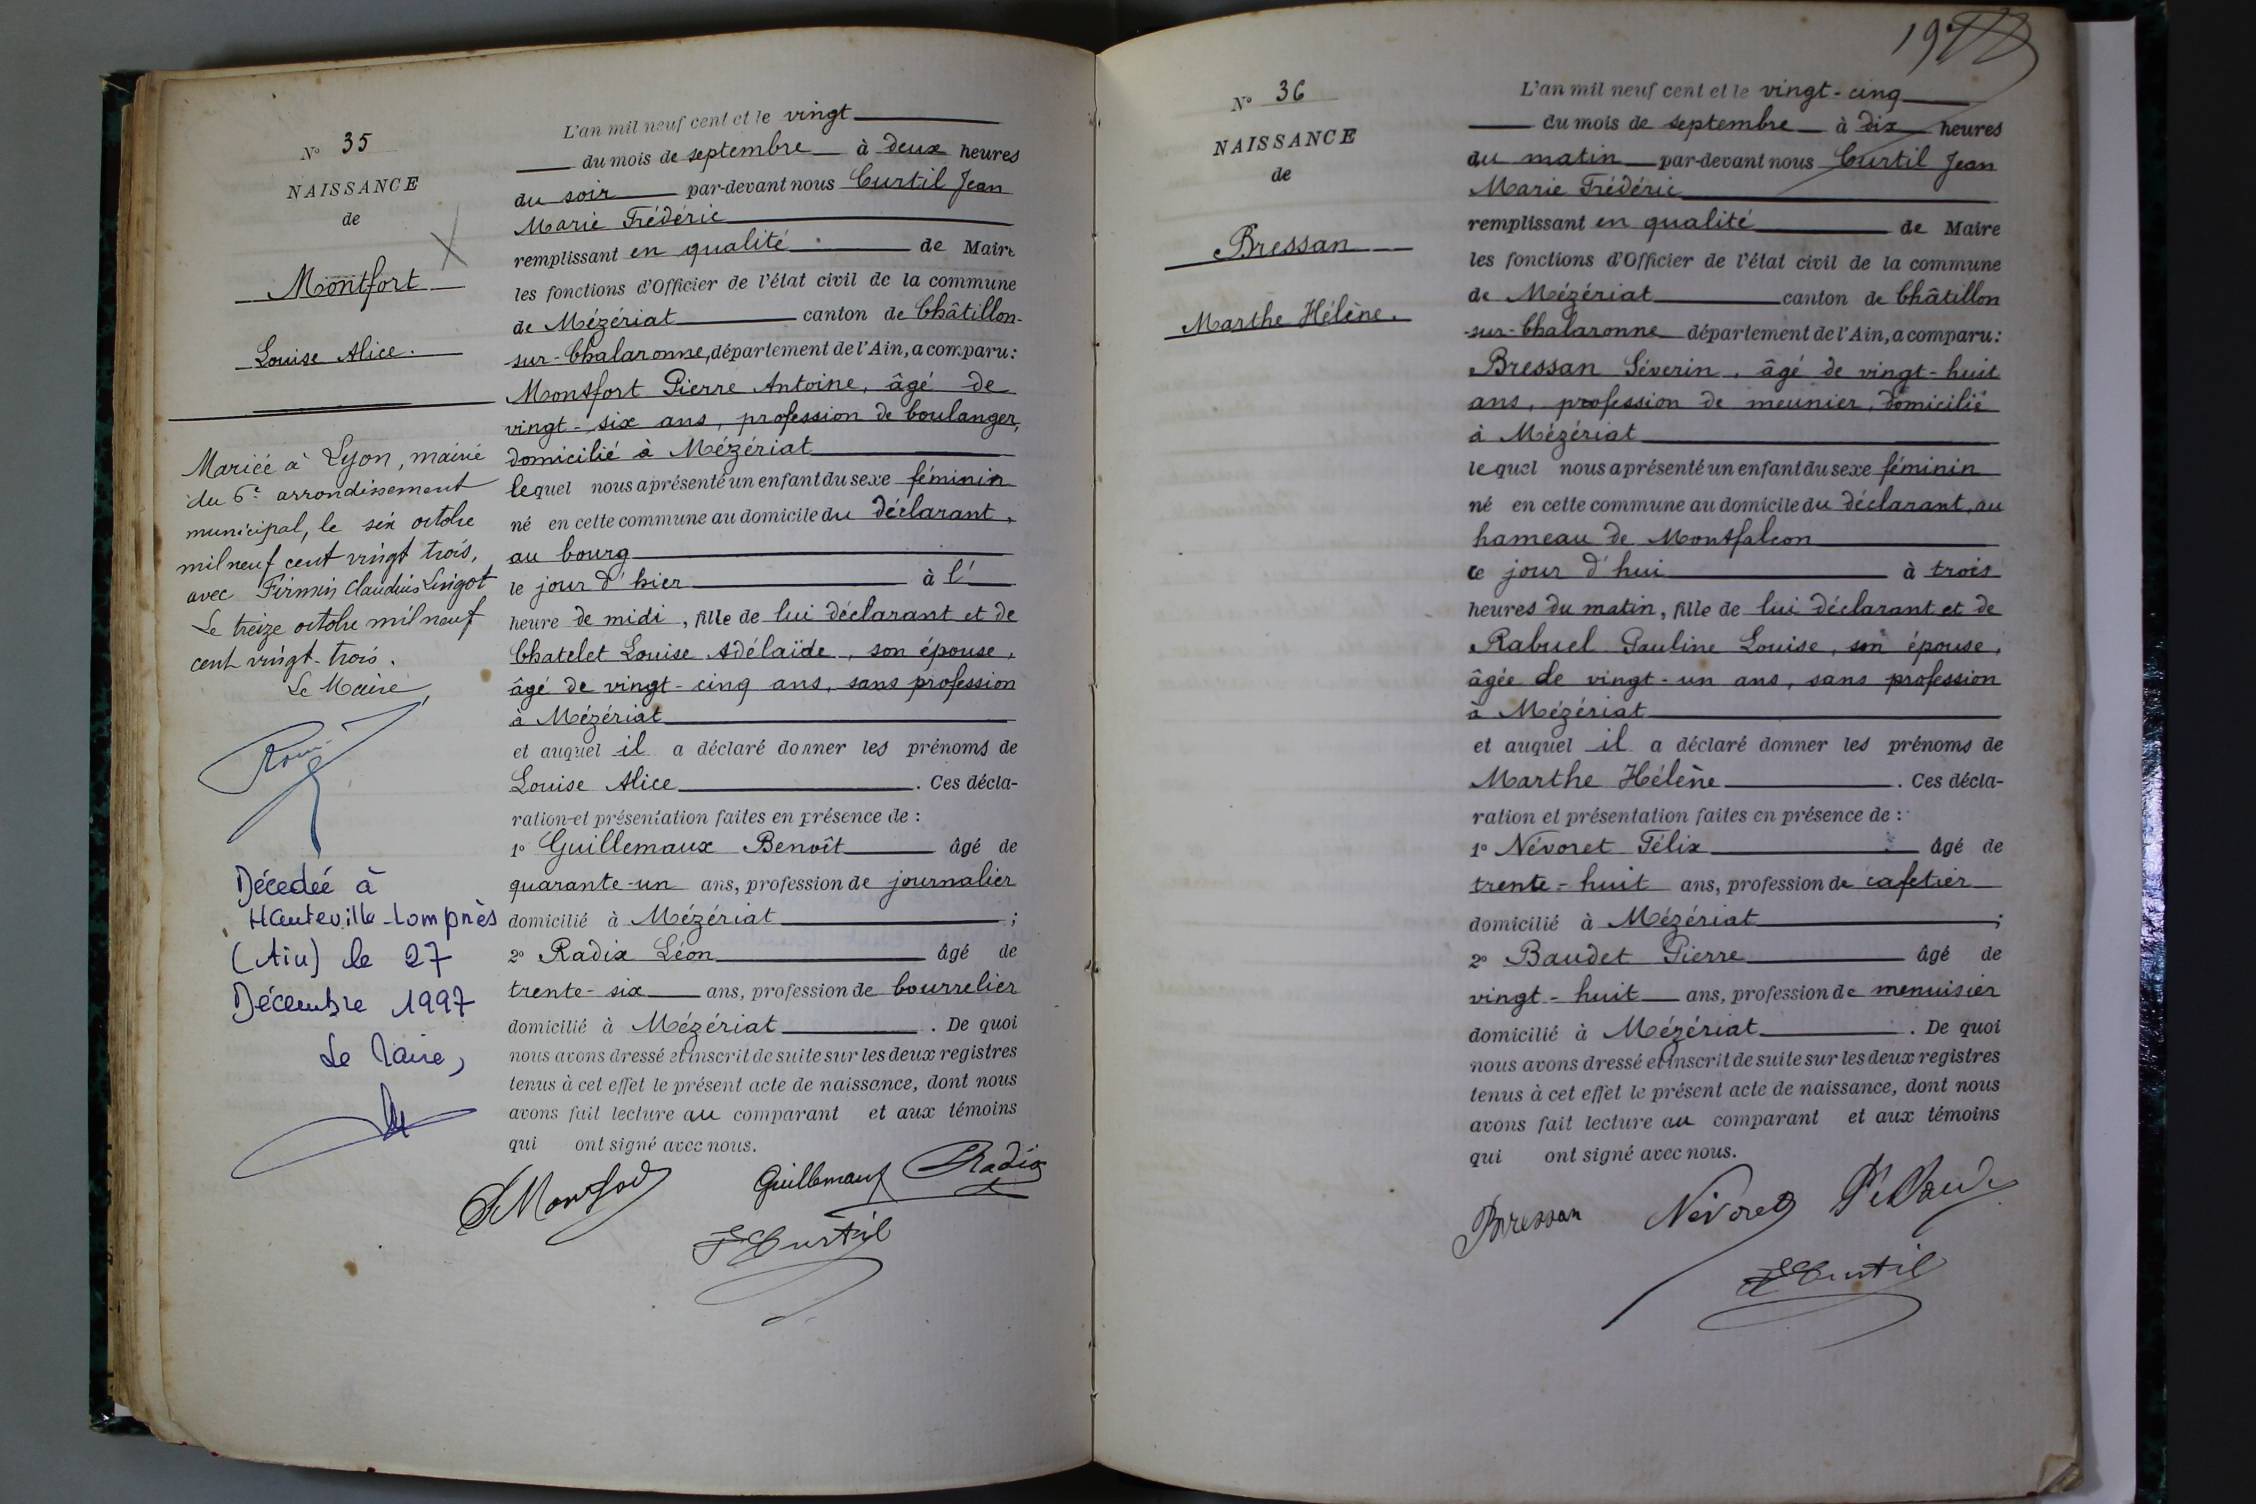 N° 35
NAISSANCE
de
Montfort
Louise Alice.
Mariée à Lyon, mairie
du 6e arrondissement
municipal, le six octobre
mil neuf cent vingt trois,
avec Firmin Claudius
Le treize octobre mil neuf
cent vingt-trois.
Le Maire,
Décedeé à
Hauteville-Lompnès
(Ain) le 27
Décembre 1997
Le Maire,
L'an mil neuf cent et le vingt
du mois de septembre à deux heures
du soir par-devant nous Curtil Jean
Marie Frédéric
remplissant en qualité de Maire
les fonctions d'Officier de l'état civil de la commune
de Mézériat canton de Châtillon-
sur-Chalaronne, département de l'Ain, a comparu:
Montfort Pierre Antoine, âgé de
vingt-six ans, profession de boulanger,
domicilié à Mézériat
lequel nous a présenté un enfant du sexe féminin
né en cette commune au domicile du déclarant,
au bourg
le jour d'hier à l'
heure de midi, fille de lui déclarant et de
Chatelet Louise Adélaïde, son épouse,
âgé de vingt-cinq ans, sans profession
à Mézériat
et auquel il a déclaré donner les prénoms de
Louise Alice. Ces décla-
ration et présentation faites en présence de :
1° Guillemaux Benoît âgé de
quarante-un ans, profession de journalier
domicilié à Mézériat ;
2° Radix Léon âgé de
trente-six ans, profession de bourrelier
domicilié à Mézériat. De quoi
nous avons dressé et inscrit de suite sur les deux registres
tenus à cet effet le présent acte de naissance, dont nous
avons fait lecture au comparant et aux témoins
qui ont signé avec nous.
Montfort Guillemaux Radix
Curtil
N° 36
NAISSANCE
de
Bressan
Marthe Hélène.
19
L'an mil neuf cent et le vingt-cinq
du mois de septembre à dix heures
du matin par-devant nous Curtil Jean
Marie Frédéric
remplissant en qualité de Maire
les fonctions d'Officier de l'état civil de la commune
de Mézériat canton de Châtillon
-sur-Chalaronne département de l'Ain, a comparu:
Bressan Séverin, âgé de vingt-huit
ans, profession de meunier, domicilié
à Mézériat
lequel nous a présenté un enfant du sexe féminin
né en cette commune au domicile du déclarant, au
hameau de Montfalcon
ce jour d'hui à trois
heures du matin, fille de lui déclarant et de
Rabuel Pauline Louise, son épouse,
âgée de vingt-un ans, sans profession
à Mézériat
et auquel il a déclaré donner les prénoms de
Marthe Hélène. Ces décla-
ration et présentation faites en présence de :
1° Névoret Félix âgé de
trente-huit ans, profession de cafetier
domicilié à Mézériat ;
2° Baudet Pierre âgé de
vingt-huit ans, profession de menuisier
domicilié à Mézériat. De quoi
nous avons dressé et inscrit de suite sur les deux registres
tenus à cet effet le présent acte de naissance, dont nous
avons fait lecture au comparant et aux témoins
qui ont signé avec nous.
Bressan Névoret
Curtil